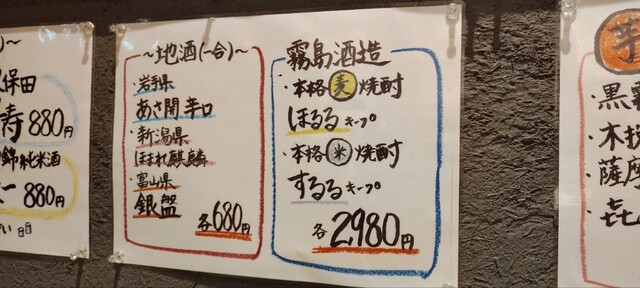 保田
寿 880円
錦 純米酒
880円
～地酒(一合)～
・岩手県
あさ開 辛口
・新潟県
ほまれ麒麟
・富山県
銀盤
各680円
霧島酒造
・本格麦焼酎
ほろる キープ
・本格米焼酎
するる キープ
各2,980円
芋
・黒霧
・木挽
・薩摩
・㐂